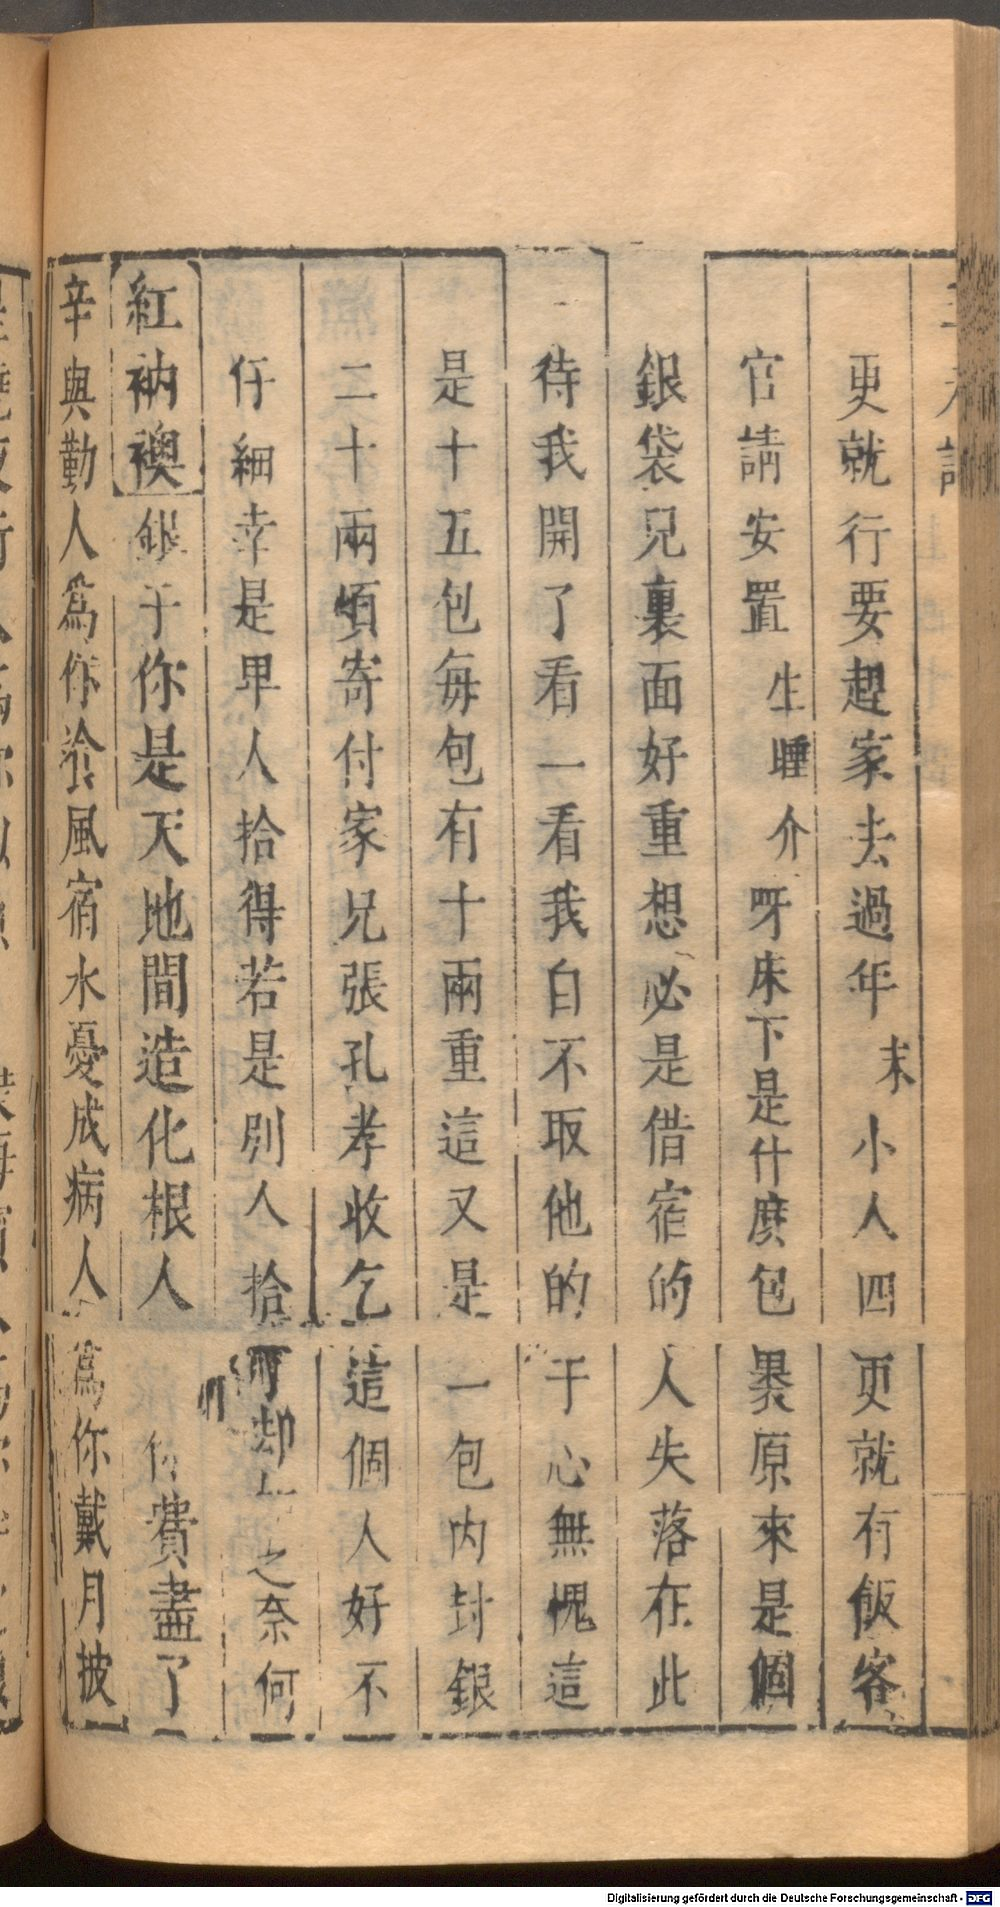 更就行要趕家去過年末小人四更就有飯客
官請安置生睡介呀床下是什麽包裹原來是個
銀袋兒裏面好重想必是借宿的人失落在此
待我開了看一看我白不取他的于心無愧這
是十五包每包有十兩重這又是一包内封銀
二十兩煩寄付家兄張孔孝收乞這個人好不
仔細幸是卑人拾得若是別人拾却之奈何
紅衲襖銀于你是天地間造化根人費盡了
辛與勤人為你飡風宿水憂成病人為你戴月披
Digitalisierung gefördert durch die Deutsche Forschungsgemeinschaft - DFG